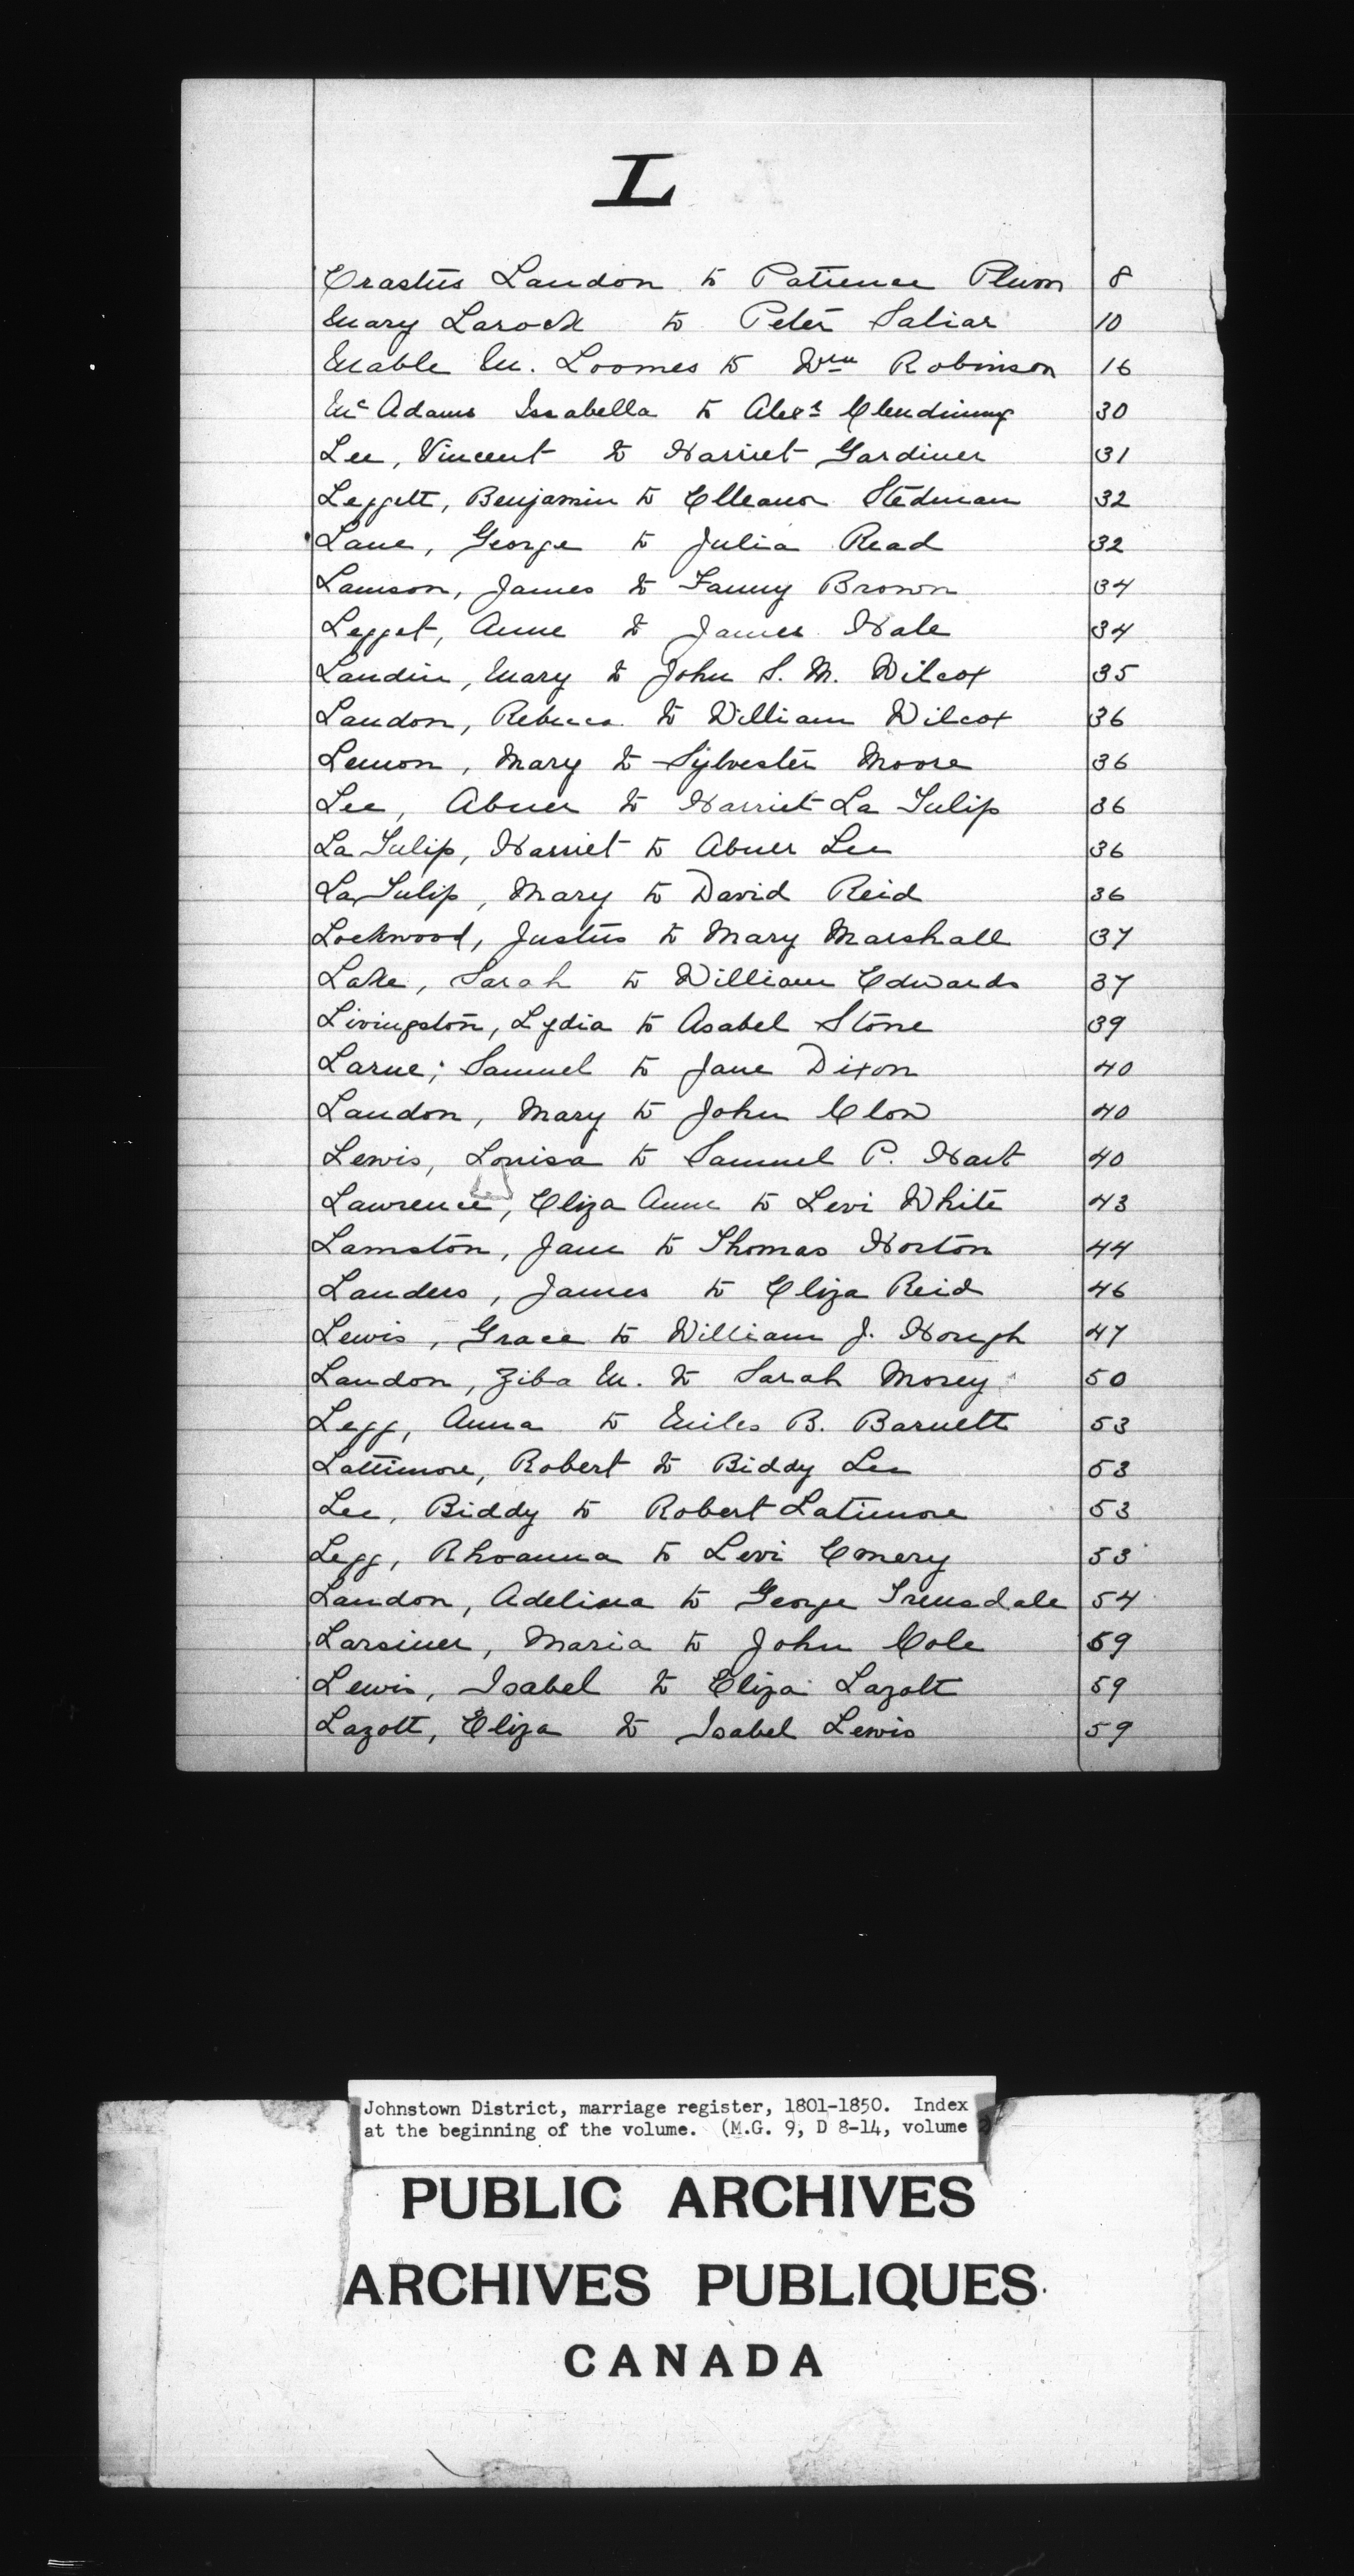 L
Erastus Landon to Patience Plum 8
Mary Larock to Peter Saliar 10
Mable M. Loomes to Wm Robinson 16
Mc Adams Issabella to Alexr Clendining 30
Lee, Vincent to Harriet Gardiner 31
Leggett, Benjamin to Elleanor Stedman 32
Lane, George to Julia Read 32
Lamson, James to Fanny Brown 34
Legget, Anne to James Hale 34
Landin, Mary to John S. M. Wilcox 35
Landon, Rebecca to William Wilcox 36
Lemon, Mary to Sylvester Moore 36
Lee, Abner to Harriet La Tulip 36
La Tulip, Harriet to Abner Lee 36
La Tulip, Mary to David Reid 36
Lockwood, Justus to Mary Marshall 37
Lake, Sarah to William Edwards 37
Livingston, Lydia to Asabel Stone 39
Larue; Samuel to Jane Dixon 40
Landon, Mary to John Clow 40
Lewis, Louisa to Samuel P. Hart 40
Lawrence, Eliza Anne to Levi White 43
Lamston, Jane to Thomas Horton 44
Landers, James to Eliza Reid 46
Lewis, Grace to William J. Hough 47
Landon, Ziba M. to Sarah Morey 50
Legg, Anna to Miles B. Barnett 53
Lattimore, Robert to Biddy Lee 53
Lee, Biddy to Robert Latimore 53
Legg, Rhoanna to Levi Emery 53
Landon, Adelina to George Truesdale 54
Larsiner, Maria to John Cole 59
Lewis, Isabel to Eliza Lazott 59
Lazott, Eliza to Isabel Lewis 59
Johnstown District, marriage register, 1801-1850. Index
at the beginning of the volume. (M.G. 9, D 8-14, volume
PUBLIC ARCHIVES
ARCHIVES PUBLIQUES
CANADA